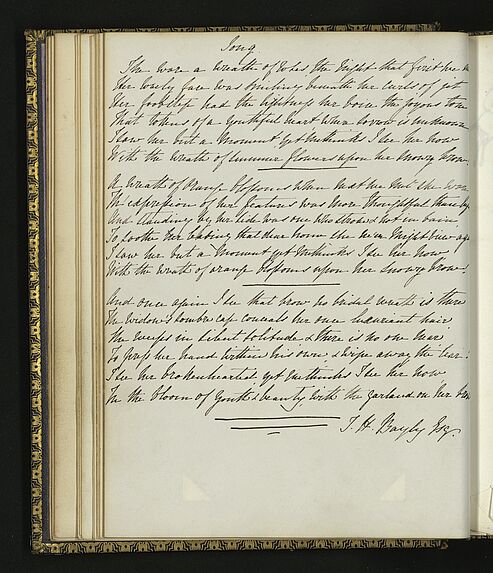 Song
She wore a wreath of roses the Night that first we m
Her lovely face was smiling beneath her curls of jet
Her footstep had the lightness her voice the joyous tone
That tokens of a youthful heart where sorrow is unknown
I saw her but a Moment yet methinks I see her now
With the wreath of summer flowers upon her snowy brow.
A wreath of Orange blossoms when next we met she wore
The expression of her features was more thoughtful than bef
And standing by her side was one who strove & not in vain
To soothe her leaving that dear home she ne'er might view aga
I saw her but a Moment yet methinks I see her now
With the wreath of orange blossoms upon her snowy brow.
And once again I see that brow no bridal wreath is there
The widow's sombre cap conceals her once luxuriant hair
She weeps in silent solitude & there is no one near
To press her hand within his own & wipe away the tear.
I see her broken hearted yet methinks I see her now
In the bloom of youth & beauty, with the garland on her brow
T. H. Bayly Esq.